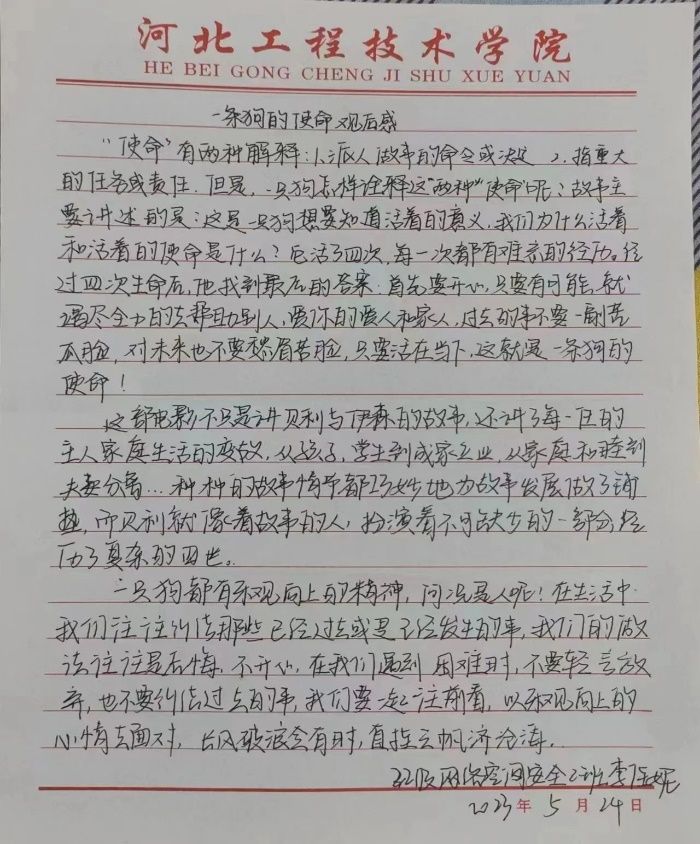 河北工程技术学院
HE BEI GONG CHENG JI SHU XUE YUAN
一条狗的使命观后感
“使命”有两种解释：1、派人做事的命令或决定 2、指重大
的任务或责任．但是，一只狗怎样诠释这“两种”使命呢？故事主
要讲述的是：这是一只狗想要知道活着的意义，我们为什么活着
和活着的使命是什么？它活了四次，每一次都有难忘的经历。经
过四次生命后，他找到最后的答案．首先要开心，只要有可能，就
竭尽全力的去帮助别人，爱你的爱人和家人，过去的事不要一副苦
瓜脸，对未来也不要愁眉苦脸，只要活在当下，这就是一条狗的
使命！
这部电影不只是讲贝利与伊森的故事，还讲了每一任的
主人家庭生活的变故，从孩子，学生到成家立业，从家庭和睦到
夫妻分离…种种的故事情节都巧妙地为故事发展做了铺
垫，而贝利就像看故事的人，扮演着不可缺少的一部分，经
历了复杂的四世。
一只狗都有乐观向上的精神，何况是人呢！在生活中
我们往往纠结那些已经过去或是已经发生的事，我们的做
法往往是后悔．不开心，在我们遇到困难时，不要轻言放
弃，也不要纠结过去的事，我们要一起往前看，以乐观向上的
心情去面对，长风破浪会有时，直挂云帆济沧海．
22级网络空间安全2班李
2023年5月24日